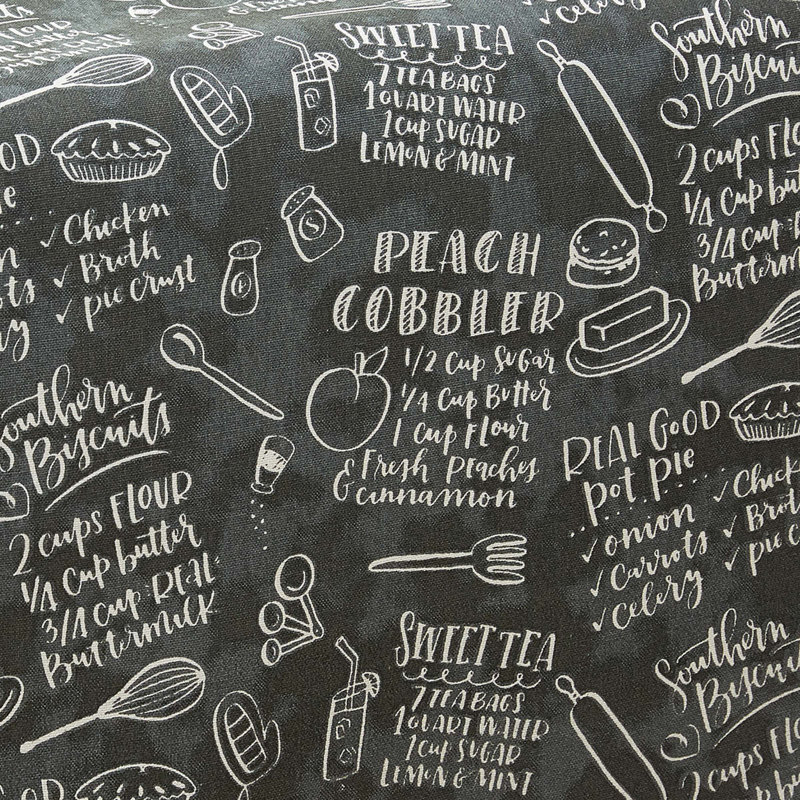 FLOUR
Celery
SWEET TEA
7 TEA BAGS
1 QUART WATER
1 cup SUGAR
LEMON & MINT
Southern
Biscuits
2 cups FLO
1/4 cup but
3/4 cup
Butterm
OOD
ie
✓ Chicken
✓ Broth
✓ pie crust
S
P
PEACH
COBBLER
1/2 Cup Sugar
1/4 Cup Butter
1 Cup Flour
& Fresh Peaches
& cinnamon
Southern
Biscuits
2 cups FLOUR
1/4 cup butter
3/4 cup REAL
Buttermilk
REAL GOOD
pot pie
✓ onion
✓ Carrots
✓ Celery
✓ Chick
✓ Brot
✓ pie c
SWEET TEA
7 TEA BAGS
1 QUART WATER
1 cup SUGAR
LEMON & MINT
Southern
Biscui
2 cups FLO